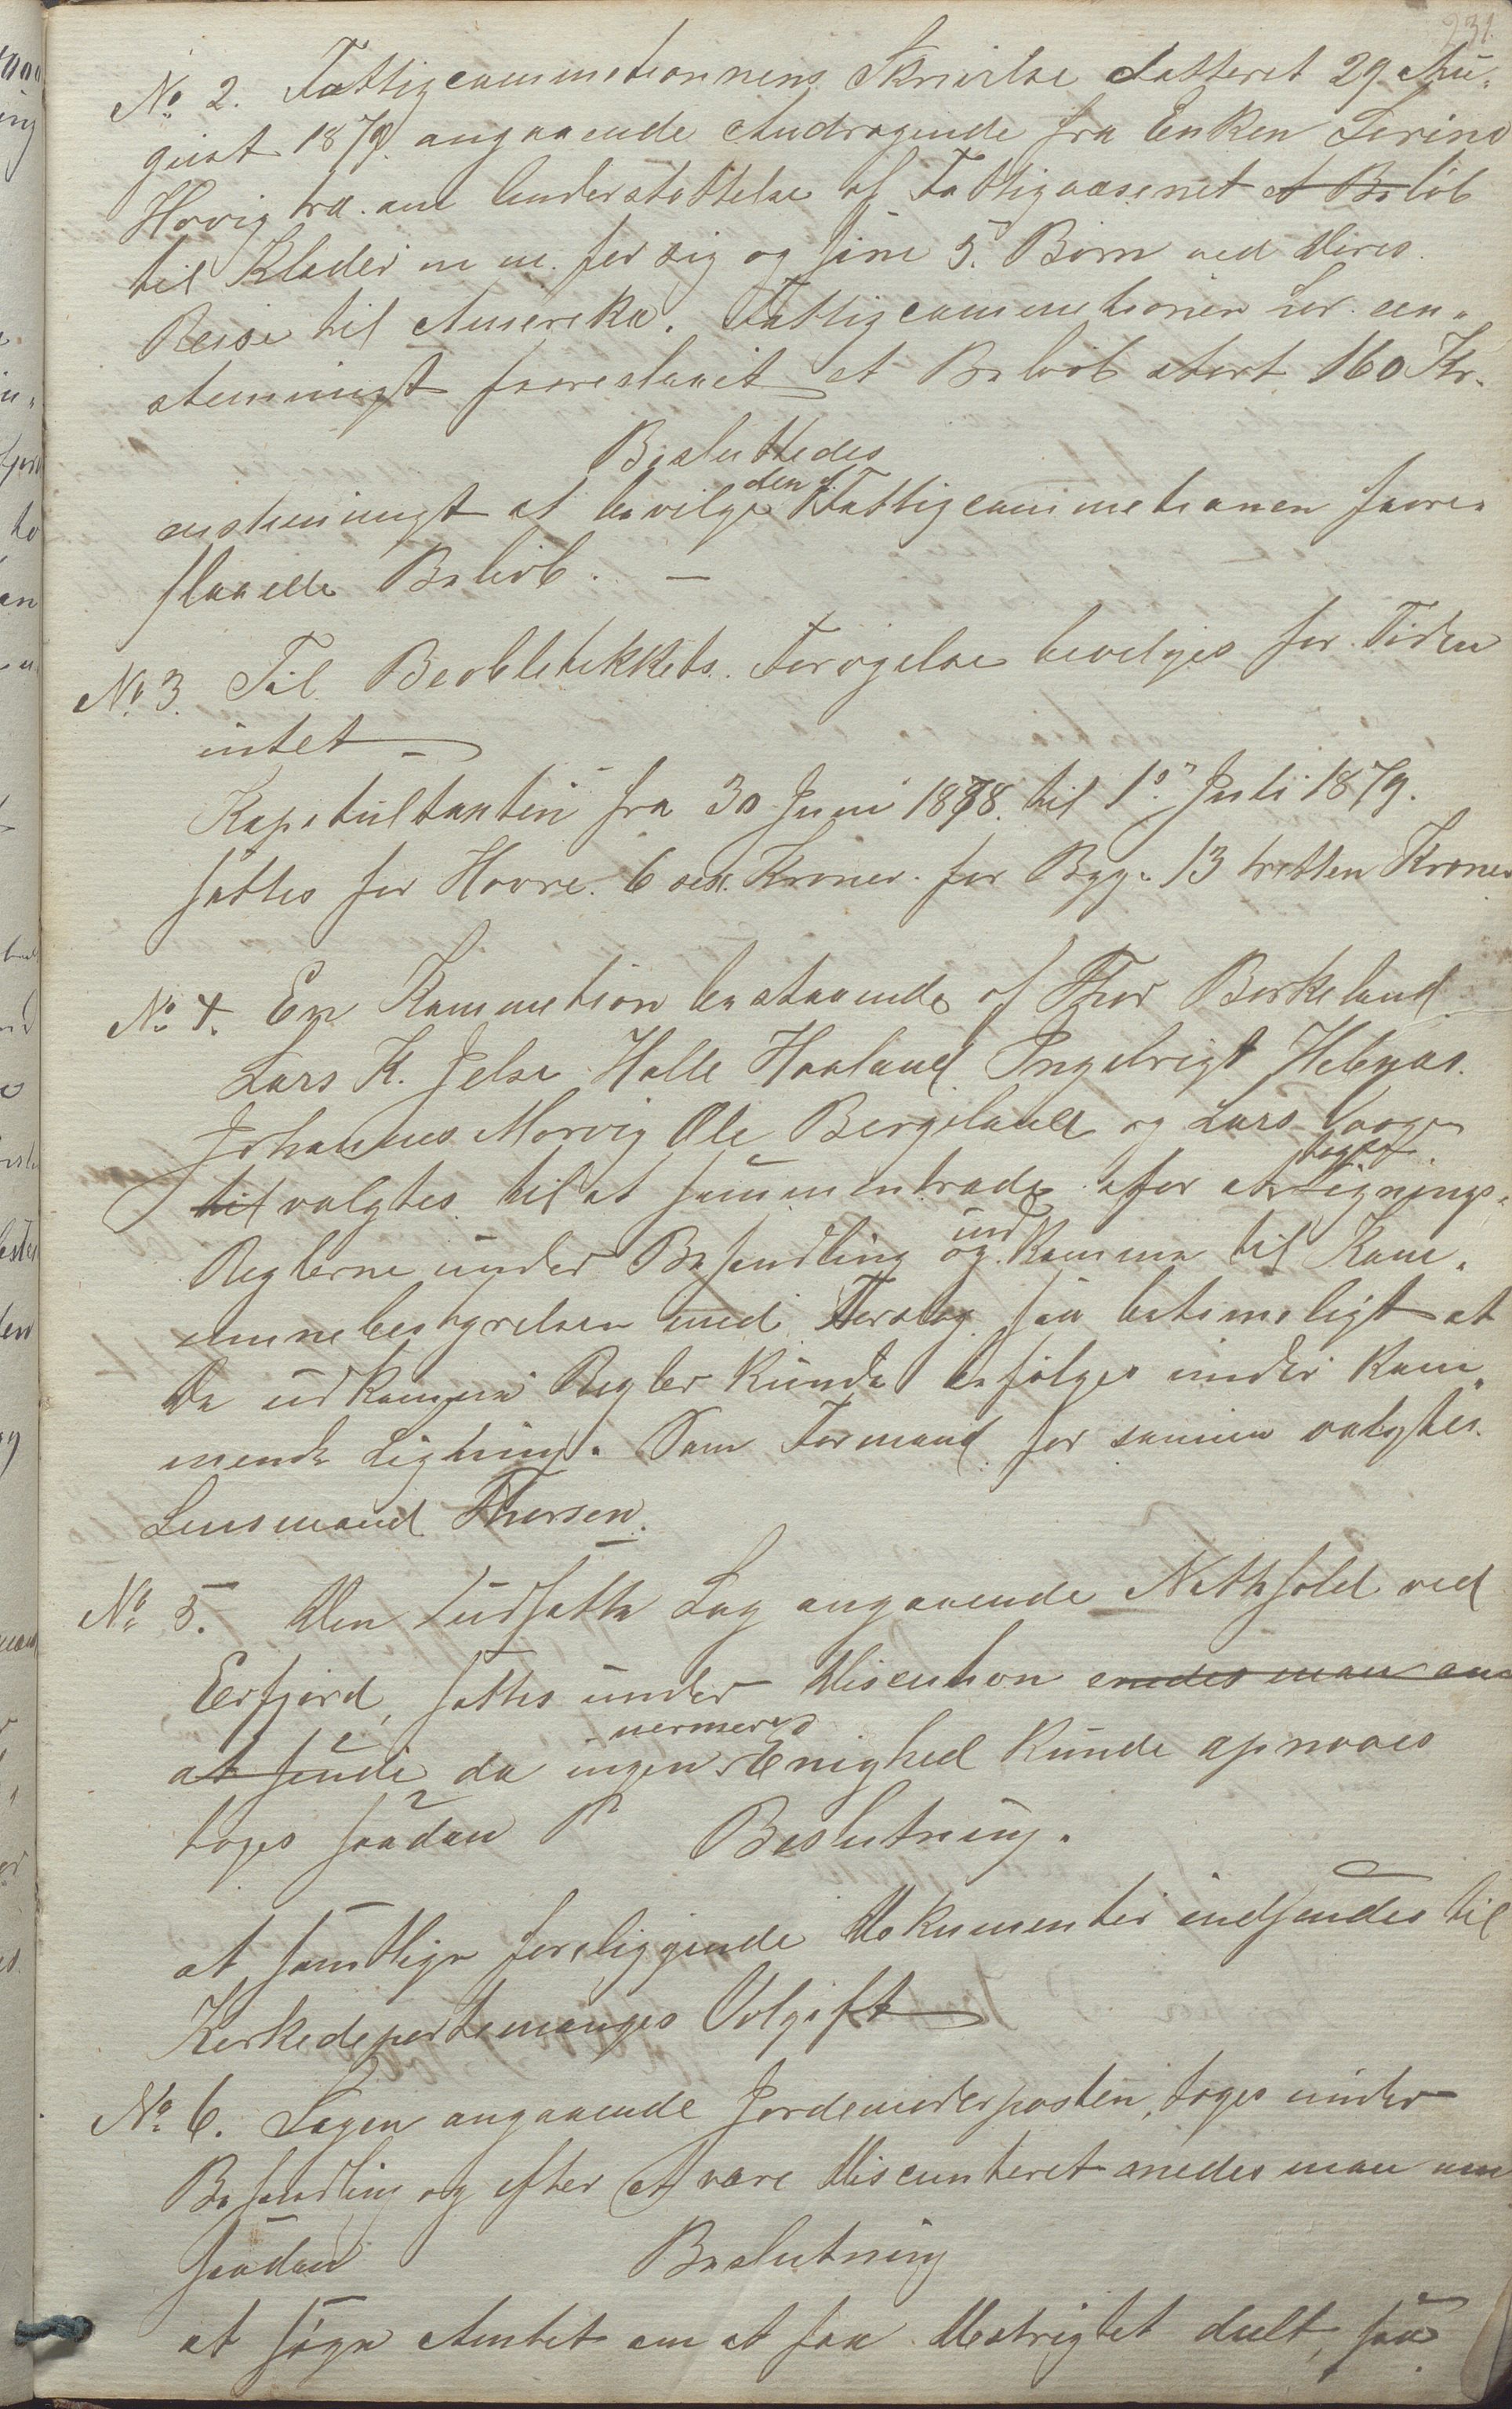 231.
No 2. Fattigcommitionnens Skrivelse datteret 29 Au-
gust 1879. angaaende Andragende fra Enken Serina
Hovig bra. om Understøttelse af Fattigvæsenet et Beløb
til Klæder m m. for sig og sine 5. Børn ved deres
Reise til Amereka. Fattigcommitionen har een-
stemmigt foreslaaet et Beløb stort 160 Kr.
Besluttedes
enstemmigt at bevilge den af Fattigcommitionen fore-
slaaede Beløb. —
No 3. Til Beobletekkets Forøgelse bevelges for Tiden
intet —
Kapetultaxten fra 30 Juni 1878. til 1ste Juli 1879.
sattes for Havre. 6 sex. Kroner. for Byg. 13 tretten Kroner
No 4. En Kommition bestaaende af Thor Berkeland
Lars K. Jelse Halle Haaland Ingebrigt Hebnæs.
Johannes Morvig Ole Bergeland og Lars Vaage
til valgtes til at sammentræde for at tage Lignings-
Reglerne under Behandling og ind komme til Kom-
munebestyrelsen med Forslag saa betimeligt at
de udkomne Regler kunde befølges under kom-
mende Ligning. Som Formand for samme valgtes
Lensmand Thorsen.
No 5. Den Uudsatte Sag angaaende Nathold ved
Erfjord, sattes under Discution enedes man om
at sende da ingen nermere Enighed kunde opnaaes
toges saadan Beslutning.
at samtlige foreliggende Dokumenter indsendes til
Kerkedepartemanges Volgift
No 6. Sagen angaaende Jordemoderposten, toges under
Behandling og efter at være Discunteret enedes man om
saadan Beslutning
at søge Amtet om at faa Destrigtet deelt, saa